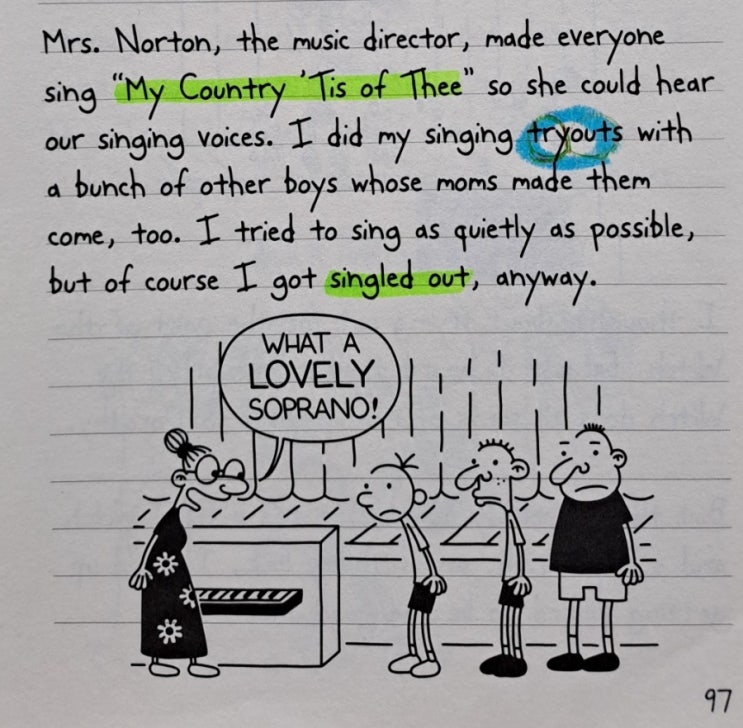 Mrs. Norton, the music director, made everyone
sing "My Country 'Tis of Thee" so she could hear
our singing voices. I did my singing tryouts with
a bunch of other boys whose moms made them
come, too. I tried to sing as quietly as possible,
but of course I got singled out, anyway.
WHAT A
LOVELY
SOPRANO!
97